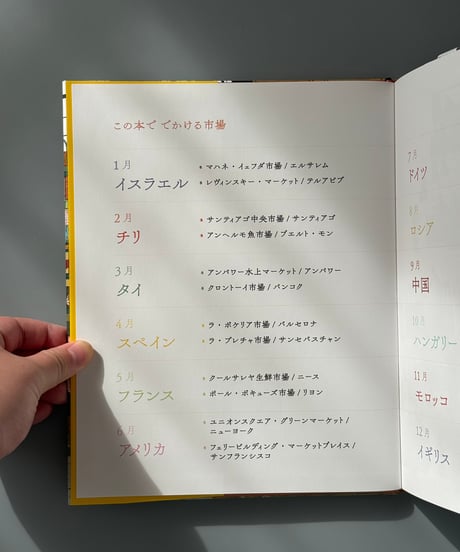 この本で でかける市場
1月
イスラエル
マハネ・イェフダ市場 / エルサレム
レヴィンスキー・マーケット / テルアビブ
2月
チリ
サンティアゴ中央市場 / サンティアゴ
アンヘルモ魚市場 / プエルト・モン
3月
タイ
アンパワー水上マーケット / アンパワー
クロントーイ市場 / バンコク
4月
スペイン
ラ・ボケリア市場 / バルセロナ
ラ・ブレチャ市場 / サンセバスチャン
5月
フランス
クールサレヤ生鮮市場 / ニース
ポール・ボキューズ市場 / リヨン
6月
アメリカ
ユニオンスクエア・グリーンマーケット /
ニューヨーク
フェリービルディング・マーケットプレイス /
サンフランシスコ
7月
ドイツ
8月
ロシア
9月
中国
10月
ハンガリー
11月
モロッコ
12月
イギリス